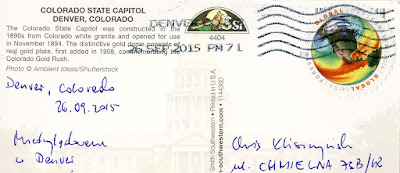 COLORADO STATE CAPITOL
DENVER, COLORADO
The Colorado State Capitol was constructed in the
1890s from Colorado white granite and opened for use
in November 1894. The distinctive gold dome consists of
real gold plate, first added in 1908, commemorating the
Colorado Gold Rush.
Photo © Ambient Ideas/Shutterstock
Denver, Colorado
26.09.2015
w Denver
DENVER
4404
25 SEP 2015 PM 7 L
Printed in U.S.A.
GLOBAL
Chris
ul. CHMIELNA 73B/12